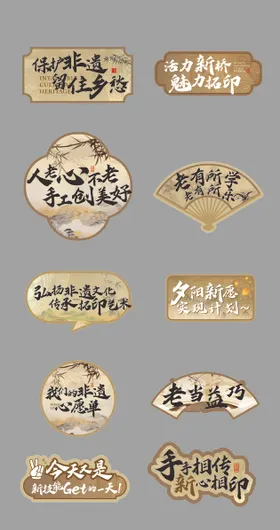 保护非遗
留住乡愁
活力新桥
魅力拓印
人老心不老
手工创美好
老有所学
老有所乐
弘扬非遗文化
传承拓印艺术
夕阳新愿
实现计划~
我们的非遗
心愿单
老当益巧
今天又是
新技能Get的一天!
手手相传
新心相印